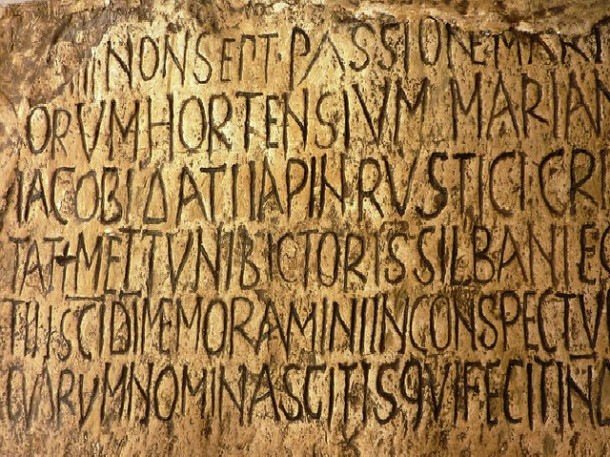 IIII NON SEPT · PASSIONE MART
ORVM HORTENSIVM MARIAN
IACOBI DATI IAPIN RVSTICI CRI
TAT METTVNI BICTORIS SILBANI EG
TII SCI DI MEMORAMINI IN CONSPECTV
QVARVM NOMINA SCIT IS QVI FECIT IND